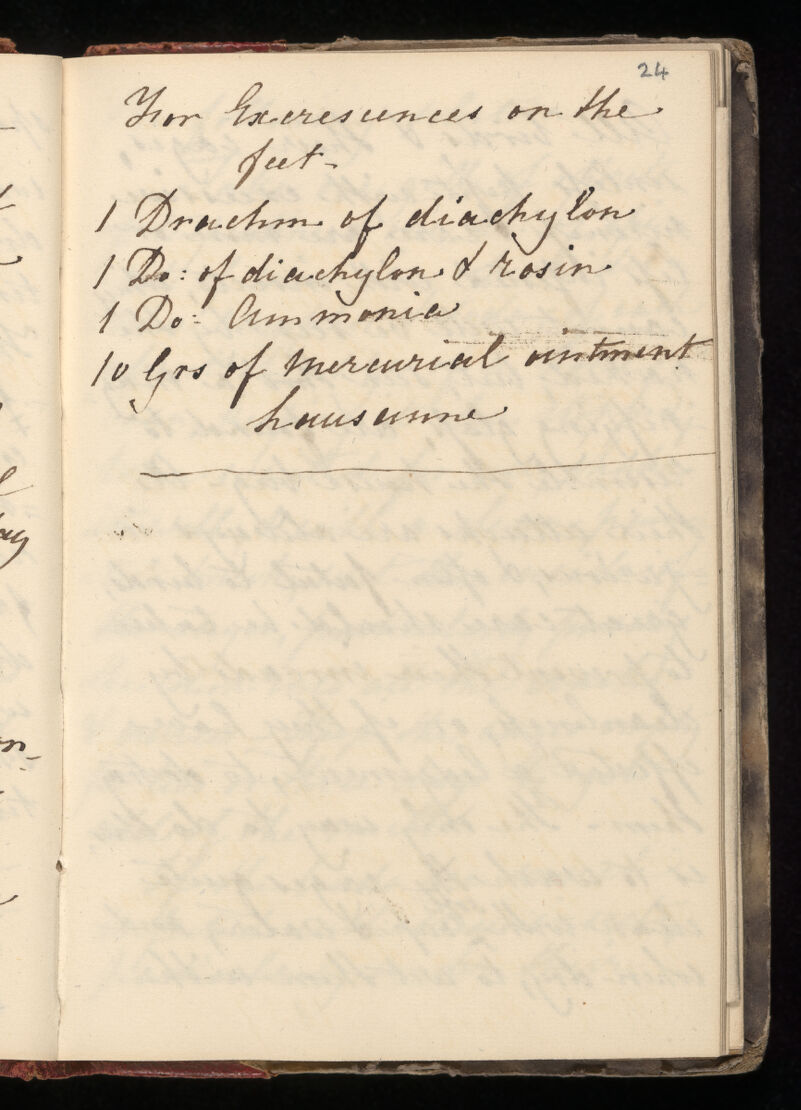 24
For Excrescences on the
feet -
1 Drachm of diachylon
1 Do: of diachylon & rosin
1 Do: Ammonia
10 Grs of Mercurial ointment
Lausanne